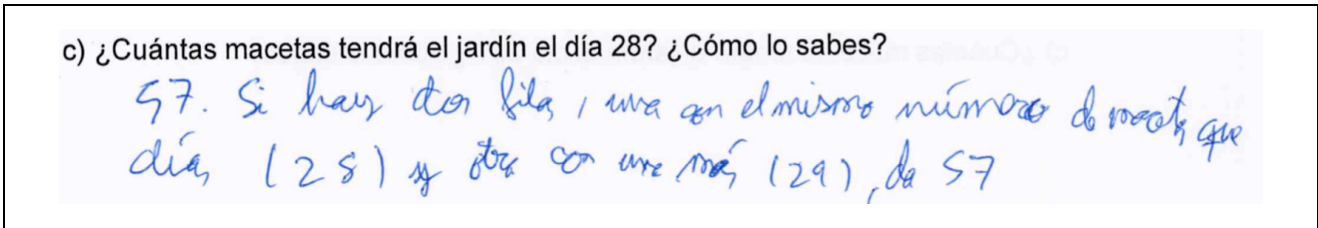 c) ¿Cuántas macetas tendrá el jardín el día 28? ¿Cómo lo sabes?
57. Si hay dos fila, una con el mismo número de macetas que
días (28) y otra con una más (29), da 57